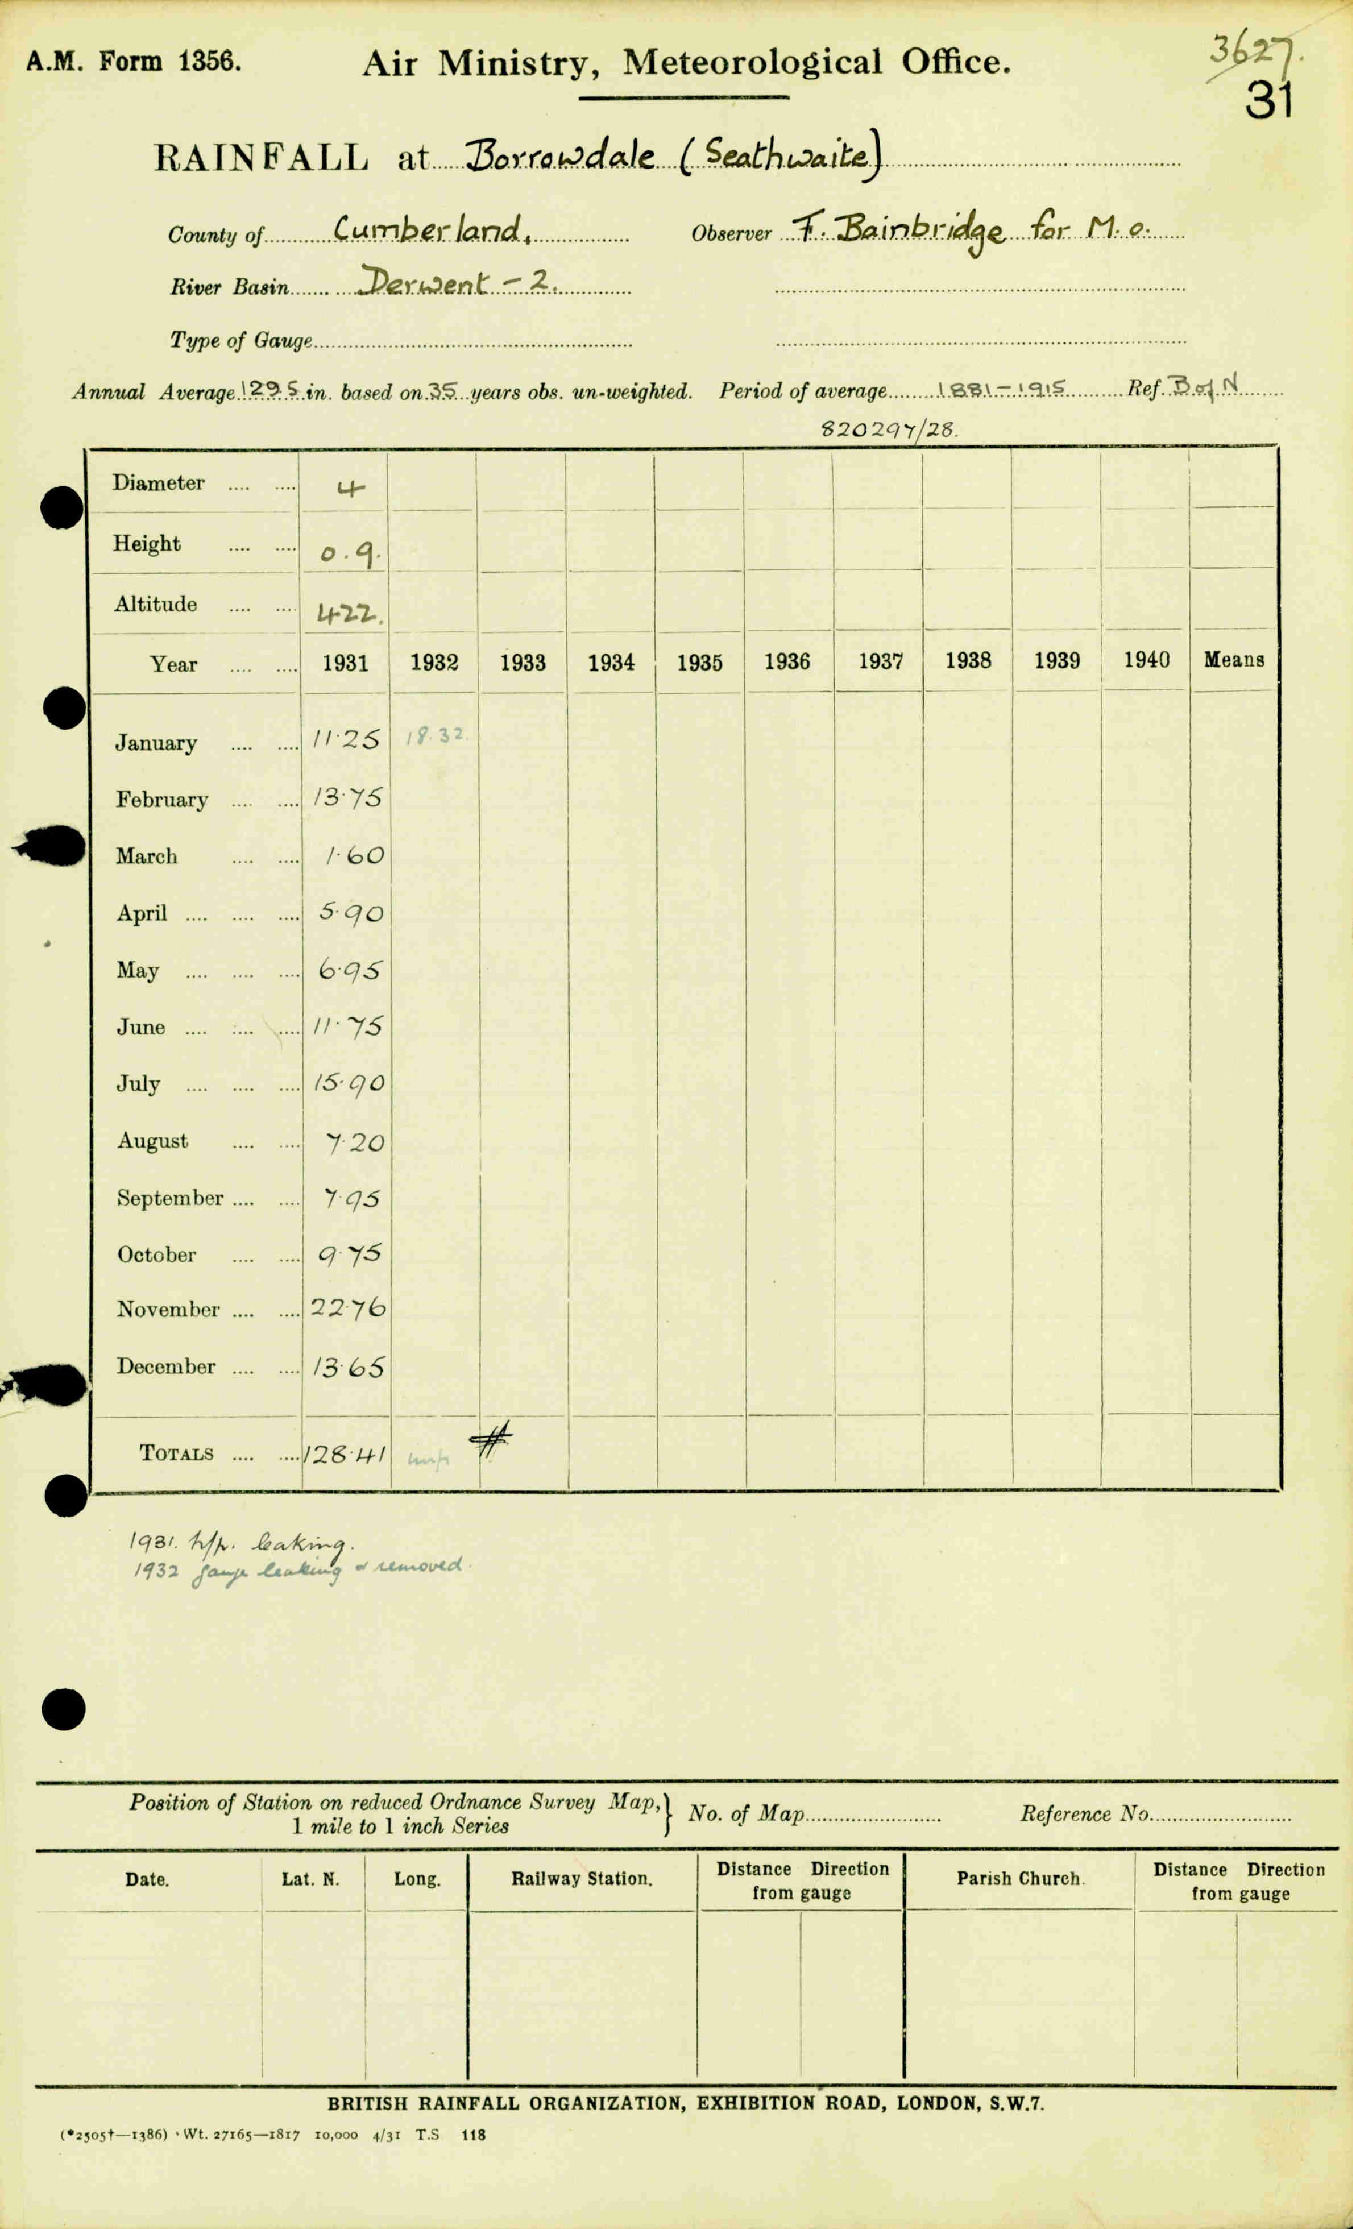 A.M. Form 1356. Air Ministry, Meteorological Office. 3627.
31
RAINFALL at Borrowdale (Seathwaite)
County of Cumberland. Observer F. Bainbridge for M.O.
River Basin Derwent - 2.
Type of Gauge
Annual Average 129.5 in. based on 35 years obs. un-weighted. Period of average 1881-1915 Ref. B of N
820297/28.
Diameter .... .... 4
Height .... .... 0.9.
Altitude .... .... 422.
Year .... .... 1931 1932 1933 1934 1935 1936 1937 1938 1939 1940 Means
January .... .... 11.25 18.32
February .... .... 13.75
March .... .... 1.60
April .... .... .... 5.90
May .... .... .... 6.95
June .... .... .... 11.75
July .... .... .... 15.90
August .... .... 7.20
September .... .... 7.95
October .... .... 9.75
November .... .... 22.76
December .... .... 13.65
TOTALS .... .... 128.41 #
1931. leaking.
1932 gauge leaking & removed
Position of Station on reduced Ordnance Survey Map, } No. of Map Reference No.
1 mile to 1 inch Series
Date. Lat. N. Long. Railway Station. Distance Direction from gauge Parish Church. Distance Direction from gauge
BRITISH RAINFALL ORGANIZATION, EXHIBITION ROAD, LONDON, S.W.7.
(*2505†—1386) Wt. 27165—1817 10,000 4/31 T.S 118